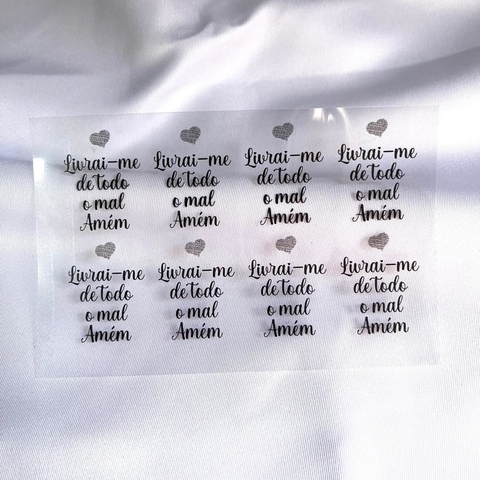 Livrai-me Livrai-me Livrai-me Livrai-me
de todo de todo de todo de todo
o mal o mal o mal o mal
Amém Amém Amém Amém
Livrai-me Livrai-me Livrai-me Livrai-me
de todo de todo de todo de todo
o mal o mal o mal o mal
Amém Amém Amém Amém